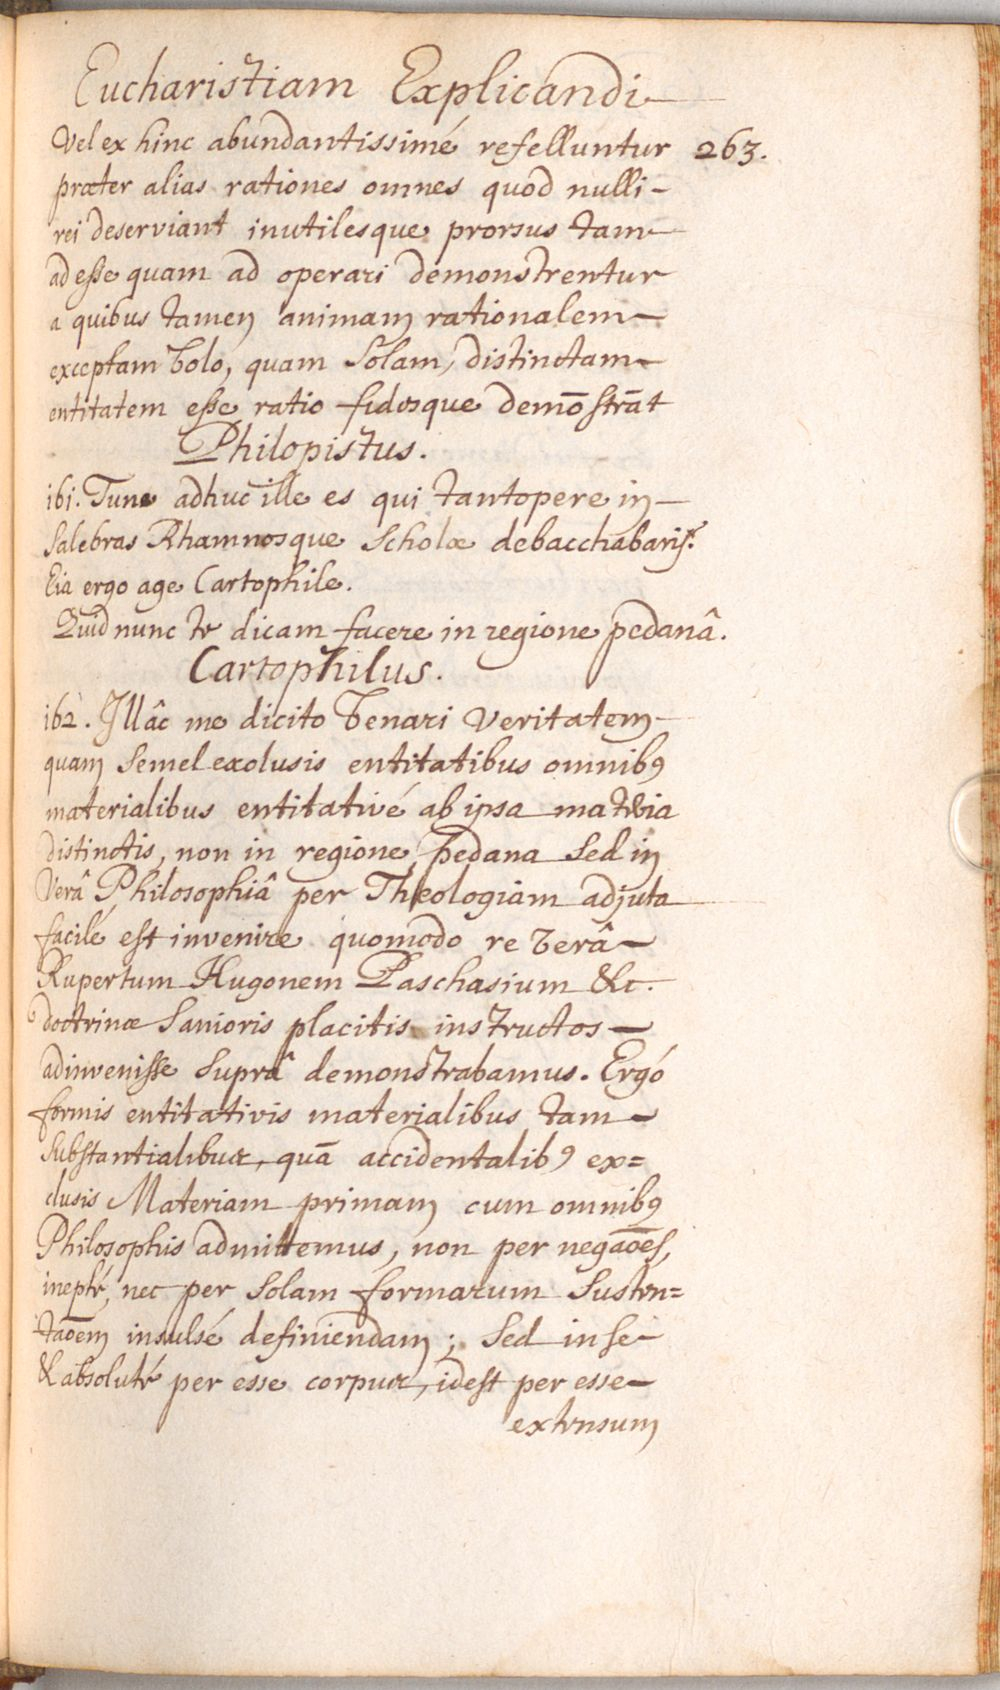 Eucharistiam Explicandi
Vel ex hinc abundantissimé refelluntur 263.
præter alias rationes omnes quod nulli
rei deserviant inutilesque prorsus tam
ad esse quam ad operari demonstrentur
a quibus tamen animam rationalem
exceptam volo, quam solam, distinctam
entitatem esse ratio fidesque demōstrāt
Philopistus.
161. Tune adhuc ille es qui tantopere in
salebras Rhamnosque Scholæ debacchabaris?
Eia ergo age Cartophile.
Quid nunc te dicam facere in regione pedanâ.
Cartophilus.
162. Illâc me dicito venari veritatem
quam semel exclusis entitatibus omnibꝰ
materialibus entitativé ab ipsa materia
distinctis, non in regione pedana sed in
verâ Philosophiâ per Theologiam adjuta
facilé est invenire quomodo re verâ
Rupertum Hugonem Paschasium &c.
doctrinæ sanioris placitis instructos
adinvenisse suprâ demonstrabamus. Ergó
formis entitativis materialibus tam
substantialibus, quā accidentalibꝰ ex=
clusis Materiam primam cum omnibꝰ
Philosophis admittemus, non per negaōes,
ineptè, nec per solam formarum susten=
taōem insulsé definiendam; sed in se
& absoluté per esse corpus, idest per esse
extensum